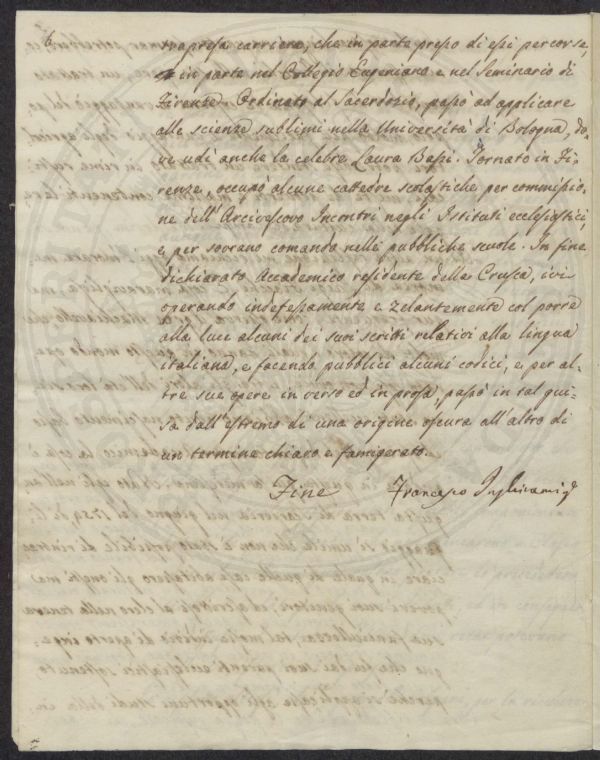 6
trapresa carriera, che in parte presso di essi percorse,
e in parte nel Collegio Eugeniano e nel Seminario di
Firenze. Ordinato al Sacerdozio, passò ad applicare
alle scienze sublimi nella Università di Bologna, do-
ve udì anche la celebre Laura Bassi. Tornato in Fi-
renze, occupò alcune cattedre scolastiche per commissio-
ne dell'Arcivescovo Incontri negli Istituti ecclesiastici,
e, per sovrano comando nelle pubbliche scuole. In fine
dichiarato Accademico residente della Crusca, ivi
operando indefessamente e zelantemente col porre
alla luce alcuni dei suoi scritti relativi alla lingua
italiana, e facendo pubblici alcuni codici, e per al-
tre sue opere in verso ed in prosa, passò in tal gui-
sa dall'estremo di una origine oscura all'altro di
un termine chiaro e famigerato.
Fine Francesco Inghirami